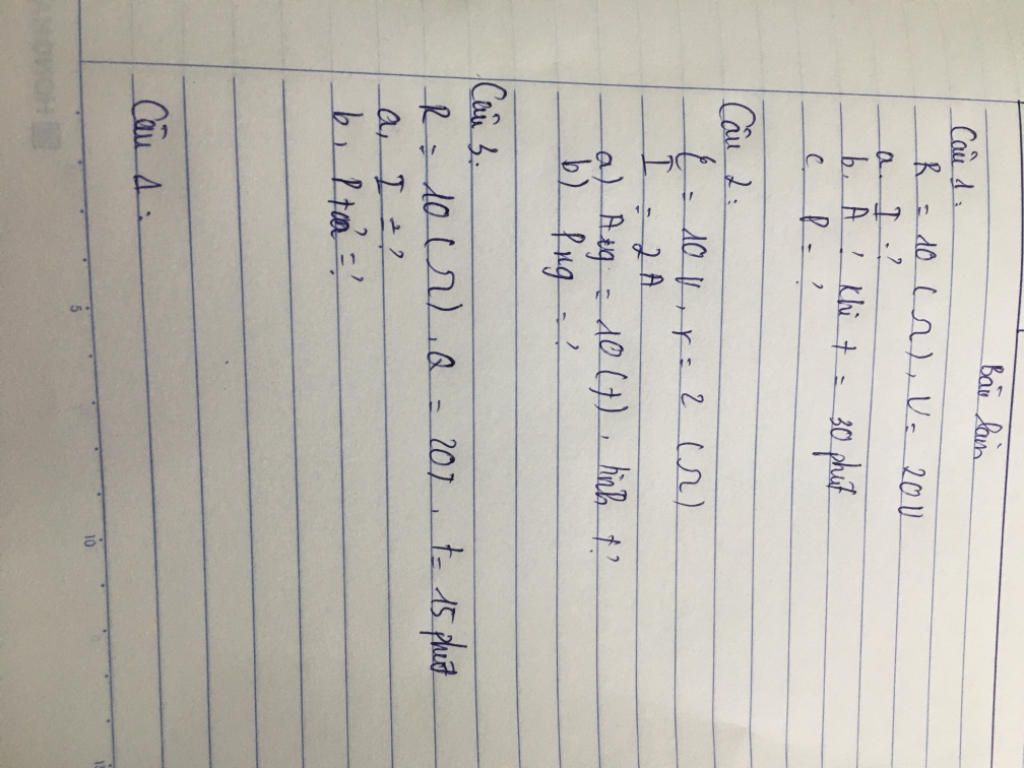 Bài làm
Câu 1:
R = 10 (Ω), U = 20V
a. I ?
b. A ? khi t = 30 phút
c. P = ?
Câu 2:
ξ = 10 V, r = 2 (Ω)
I = 2 A
a) Ang = 10 (J), tính t?
b) Png = ?
Câu 3:
R = 10 (Ω), Q = 20J, t = 15 phút
a, I = ?
b, P tỏa = ?
Câu 1:
5
10
15